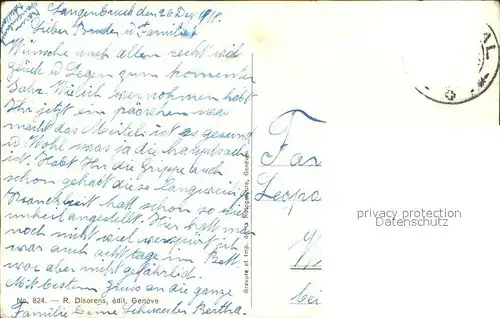 Langenbruck den 26 Dez 1918.
Lieber Bruder u Familie
Wünsche euch allen recht viel
glück u Segen zum komenten
Jahr. Wie ich vernohmen habt
Ihr jetzt ein pärchen was
macht das Meiteli ist es gesund
u Wohl was ja die hauptsache
ist. Habt Ihr die Grippe auch
schon gehabt diese Langweilige
Krankheit hatt schon so viel
unheil angestellt. Hier hatt man
noch nicht viel verspürt ich
war auch acht tage im Bett
war aber nicht gefährlich.
Mit besten Gruss an die ganze
Familie Deine Schwester Bertha.
No. 824. — R. Disorens, édit, Genève
Gravure et Imp. de la Genève
AL
Fam
Leopo
bei
privacy protection
www.oldthing.com